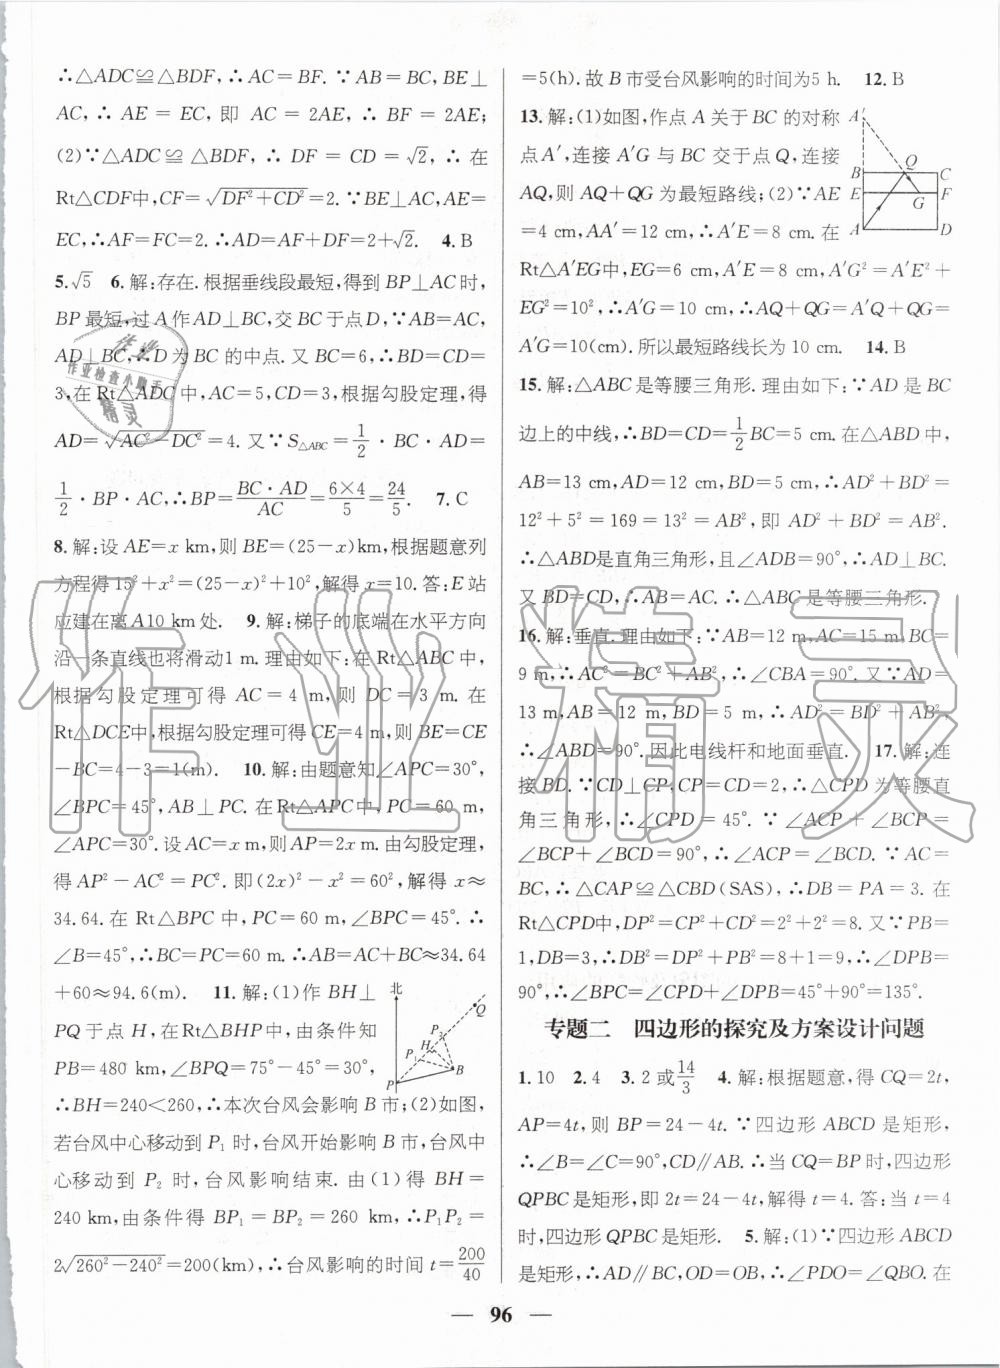 ∴△ADC≌△BDF,∴AC=BF.∵AB=BC,BE⊥
AC,∴AE=EC,即 AC=2AE,∴BF=2AE;
(2)∵△ADC≌△BDF,∴DF=CD=√2,∴在
Rt△CDF中,CF=√(DF²+CD²)=2.∵BE⊥AC,AE=
EC,∴AF=FC=2.∴AD=AF+DF=2+√2. 4.B
5.√5 6.解:存在.根据垂线段最短,得到BP⊥AC时,
BP最短,过A作AD⊥BC,交BC于点D,∵AB=AC,
AD⊥BC,∴D为BC的中点.又BC=6,∴BD=CD=
3,在Rt△ADC中,AC=5,CD=3,根据勾股定理,得
AD=√(AC²-DC²)=4.又∵S△ABC=1/2·BC·AD=
1/2·BP·AC,∴BP=BC·AD/AC=6×4/5=24/5. 7.C
8.解:设AE=x km,则BE=(25-x)km,根据题意列
方程得15²+x²=(25-x)²+10²,解得x=10.答:E站
应建在离A10 km处. 9.解:梯子的底端在水平方向
沿一条直线也将滑动1 m.理由如下:在Rt△ABC中,
根据勾股定理可得AC=4 m,则DC=3 m.在
Rt△DCE中,根据勾股定理可得CE=4 m,则BE=CE
-BC=4-3=1(m). 10.解:由题意知∠APC=30°,
∠BPC=45°,AB⊥PC.在Rt△APC中,PC=60 m,
∠APC=30°.设AC=x m,则AP=2x m.由勾股定理,
得AP²-AC²=PC².即(2x)²-x²=60²,解得x≈
34.64.在Rt△BPC中,PC=60 m,∠BPC=45°.∴
∠B=45°,∴BC=PC=60 m.∴AB=AC+BC≈34.64
+60≈94.6(m). 11.解:(1)作BH⊥
PQ于点H,在Rt△BHP中,由条件知
PB=480 km,∠BPQ=75°-45°=30°,
∴BH=240<260,∴本次台风会影响B市;(2)如图,
若台风中心移动到P₁时,台风开始影响B市,台风中
心移动到P₂时,台风影响结束.由(1)得BH=
240 km,由条件得BP₁=BP₂=260 km,∴P₁P₂=
2√(260²-240²)=200(km),∴台风影响的时间t=200/40
北
Q
P₂
H
P₁
B
P
=5(h).故B市受台风影响的时间为5 h. 12.B
13.解:(1)如图,作点A关于BC的对称
点A′,连接A′G与BC交于点Q,连接
AQ,则AQ+QG为最短路线;(2)∵AE
=4 cm,AA′=12 cm,∴A′E=8 cm.在
Rt△A′EG中,EG=6 cm,A′E=8 cm,A′G²=A′E²+
EG²=10²,∴A′G=10 cm,∴AQ+QG=A′Q+QG=
A′G=10(cm).所以最短路线长为10 cm. 14.B
A′
Q
B
C
E
F
G
A
D
15.解:△ABC是等腰三角形.理由如下:∵AD是BC
边上的中线,∴BD=CD=1/2BC=5 cm.在△ABD中,
AB=13 cm,AD=12 cm,BD=5 cm,∴AD²+BD²=
12²+5²=169=13²=AB²,即AD²+BD²=AB².
∴△ABD是直角三角形,且∠ADB=90°,∴AD⊥BC.
又BD=CD,∴AB=AC.∴△ABC是等腰三角形.
16.解:垂直.理由如下:∵AB=12 m,AC=15 m,BC=
9 m,∴AC²=BC²+AB²,∴∠CBA=90°.又∵AD=
13 m,AB=12 m,BD=5 m,∴AD²=BD²+AB²,
∴∠ABD=90°.因此电线杆和地面垂直. 17.解:连
接BD.∵CD⊥CP,CP=CD=2,∴△CPD为等腰直
角三角形,∴∠CPD=45°.∵∠ACP+∠BCP=
∠BCP+∠BCD=90°,∴∠ACP=∠BCD.∵AC=
BC,∴△CAP≌△CBD(SAS),∴DB=PA=3.在
Rt△CPD中,DP²=CP²+CD²=2²+2²=8.又∵PB=
1,DB=3,∴DB²=DP²+PB²=8+1=9,∴∠DPB=
90°,∴∠BPC=∠CPD+∠DPB=45°+90°=135°.
专题二 四边形的探究及方案设计问题
1.10 2.4 3.2或14/3 4.解:根据题意,得CQ=2t,
AP=4t,则BP=24-4t.∵四边形ABCD是矩形,
∴∠B=∠C=90°,CD∥AB.∴当CQ=BP时,四边形
QPBC是矩形,即2t=24-4t,解得t=4.答:当t=4
时,四边形QPBC是矩形. 5.解:(1)∵四边形ABCD
是矩形,∴AD∥BC,OD=OB,∴∠PDO=∠QBO.在
— 96 —
作业精灵
作业
作业检查小助手
精灵